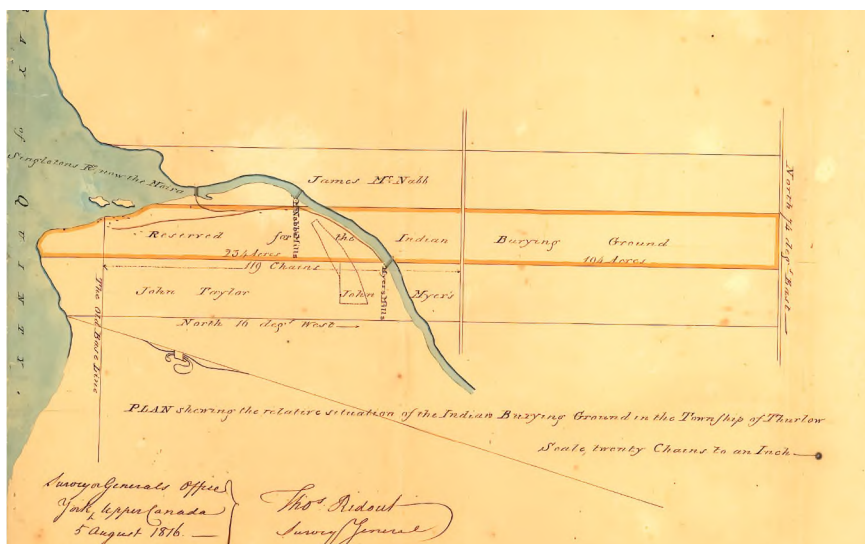 BAY of QUINTY
Singletons R. now the Moira
James McNabb
McNabb Mills
Reserved for the Indian Burying Ground
234 Acres
104 Acres
119 Chains
John Taylor
John Myer's
Myers Mills
North 16 degs West
The Old Base Line
North 74 degs East
PLAN shewing the relative situation of the Indian Burying Ground in the Township of Thurlow
Scale, twenty Chains to an Inch
Surveyor Generals Office
York, Upper Canada
5 August 1816.
Thos Ridout
Survey General